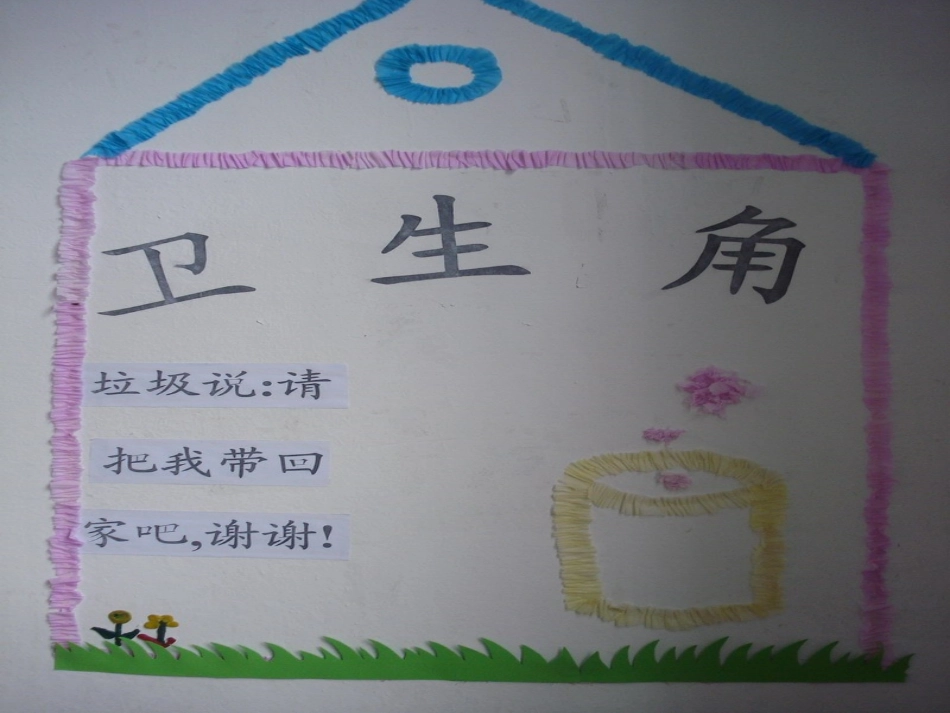 卫生角
垃圾说:请
把我带回
家吧,谢谢!